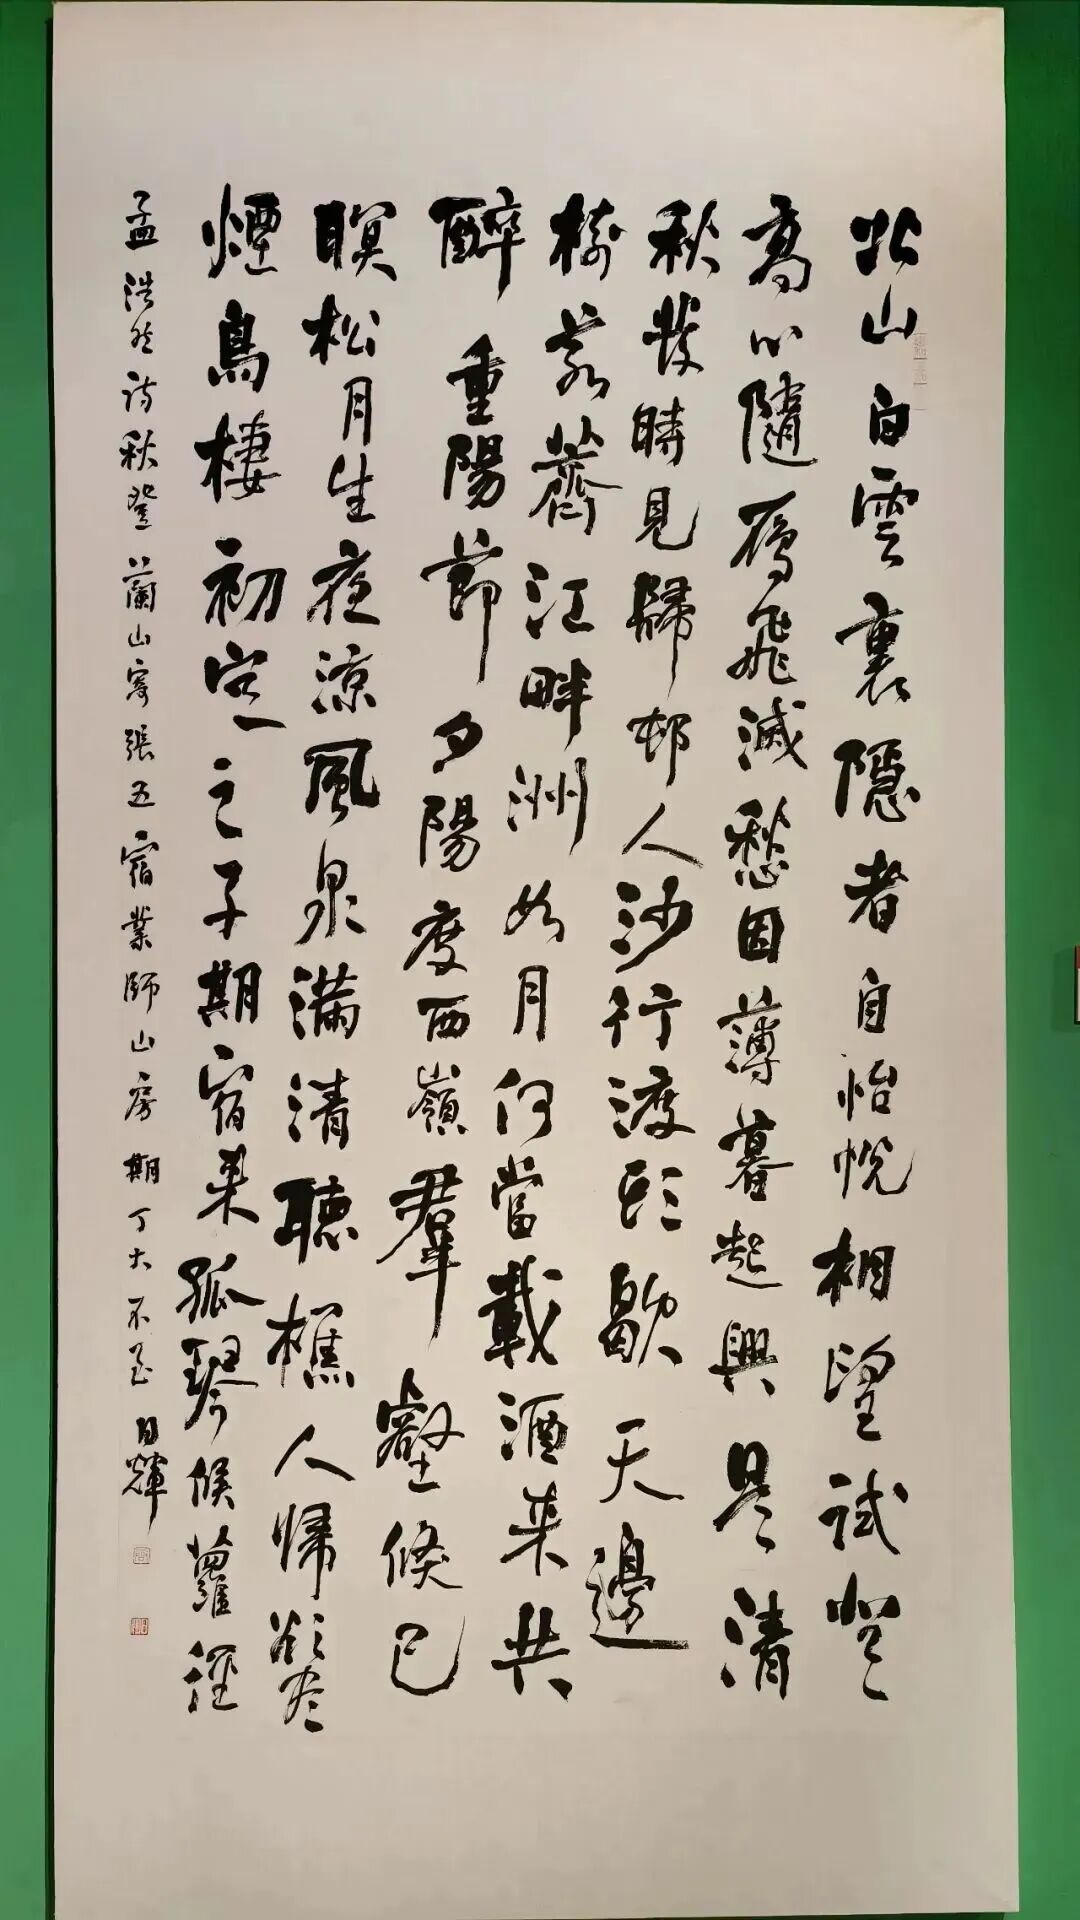 北山白雲裏隱者自怡悅相望試登
高心隨雁飛滅愁因薄暮起興是清
秋發時見歸邨人沙行渡頭歇天邊
樹若薺江畔洲如月何當載酒來共
醉重陽節夕陽度西嶺羣壑倏已
暝松月生夜涼風泉滿清聽樵人歸欲盡
煙鳥棲初定之子期宿來孤琴候蘿徑
孟浩然詩秋登蘭山寄張五宿業師山房期丁大不至 日輝